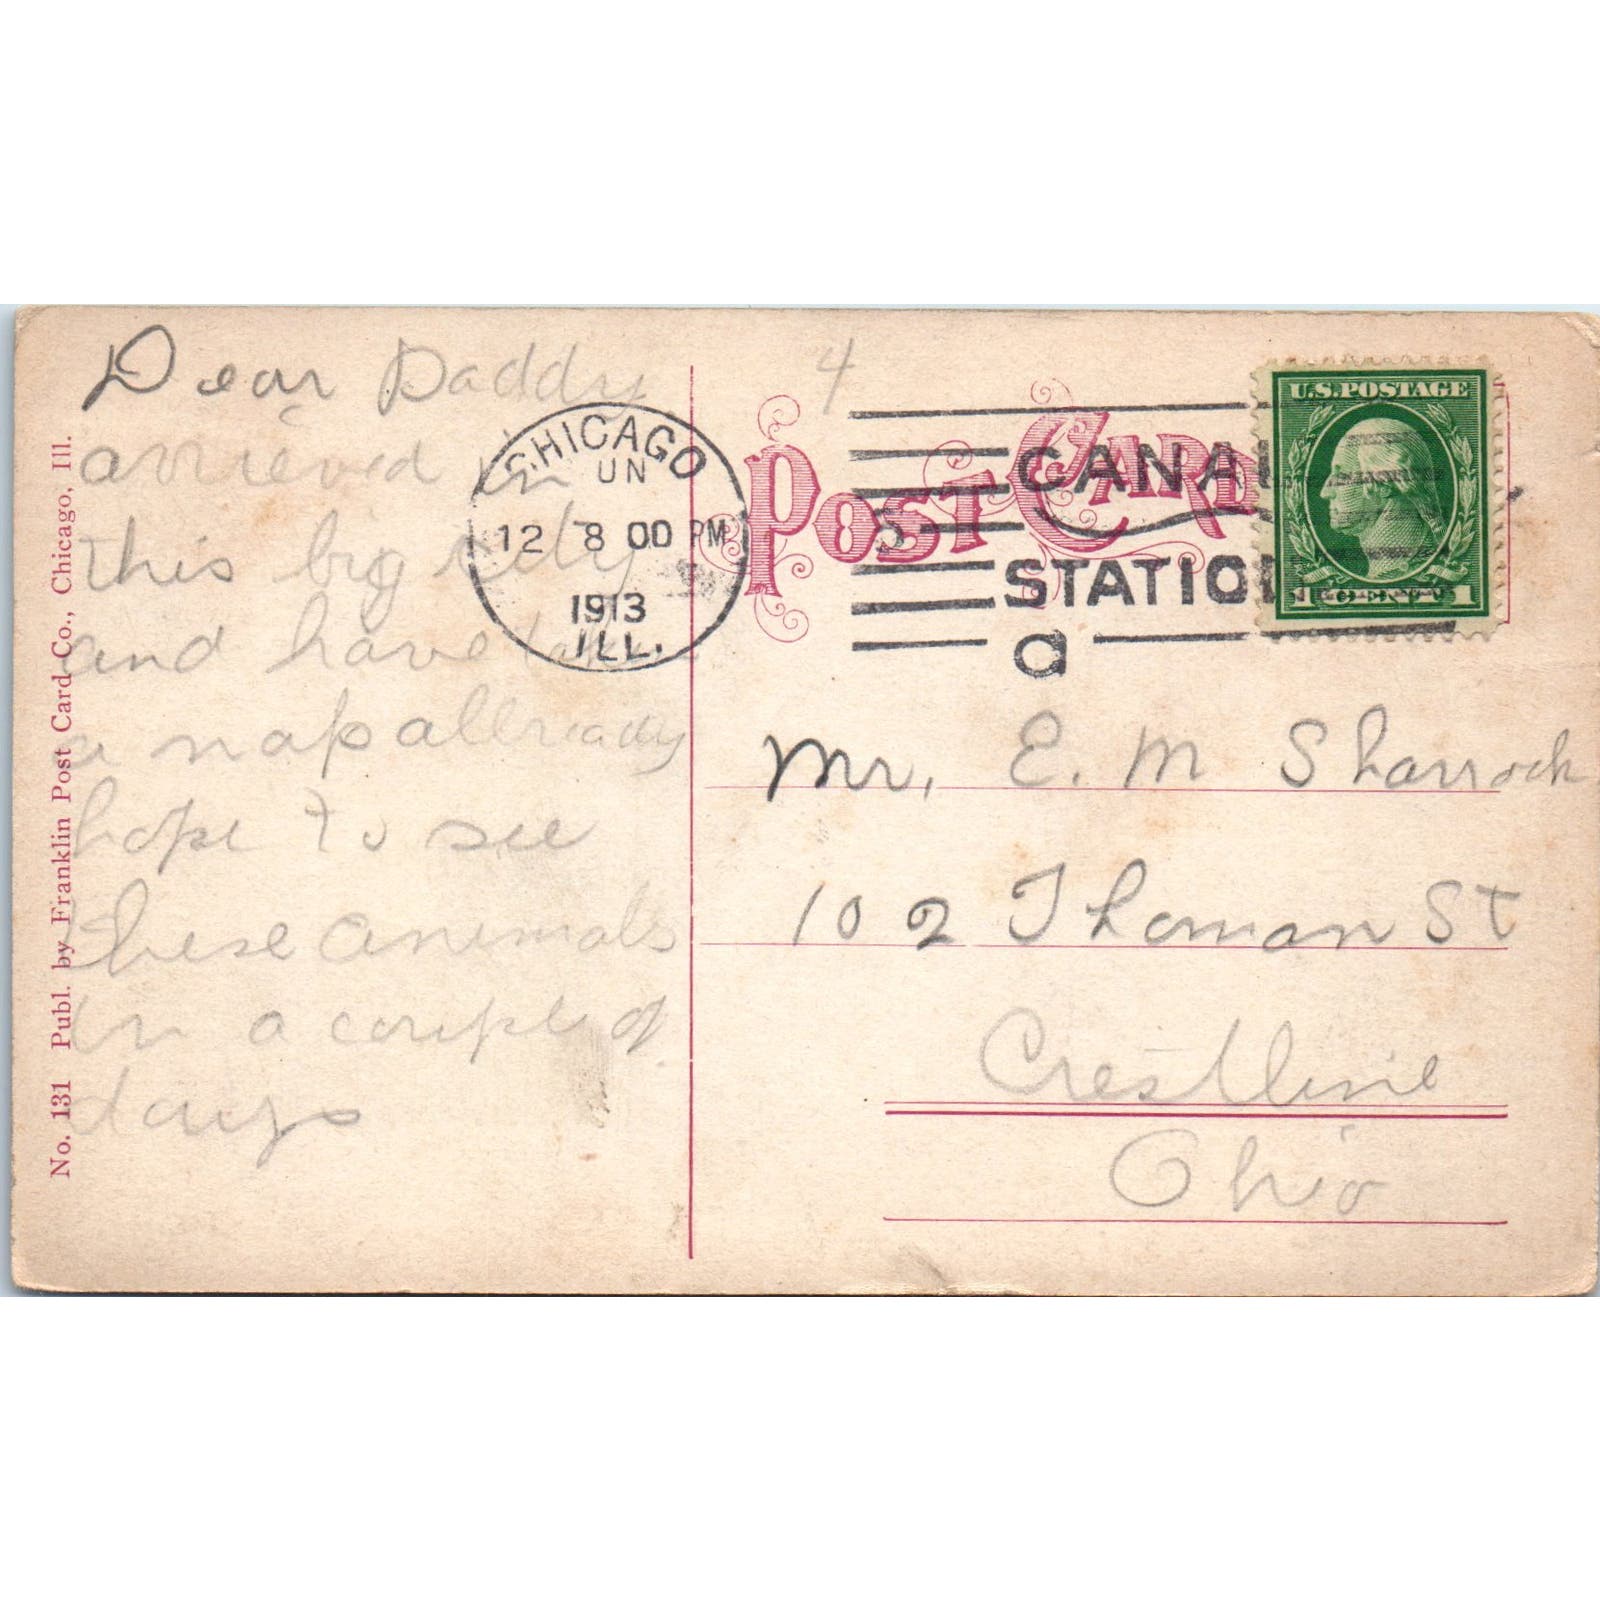 Dear Daddy
arrieved in
this big city
and have taken
a nap allready
hope to see
these animals
in a couple of
days
No. 131 Publ. by Franklin Post Card Co., Chicago, Ill.
4
POST CARD
CHICAGO
UN
12 8 00 PM
1913
ILL.
CANAL
STATION
a
U.S. POSTAGE
1 CENT 1
Mr. E. M Sharrock
102 Thoman St
Crestline
Ohio